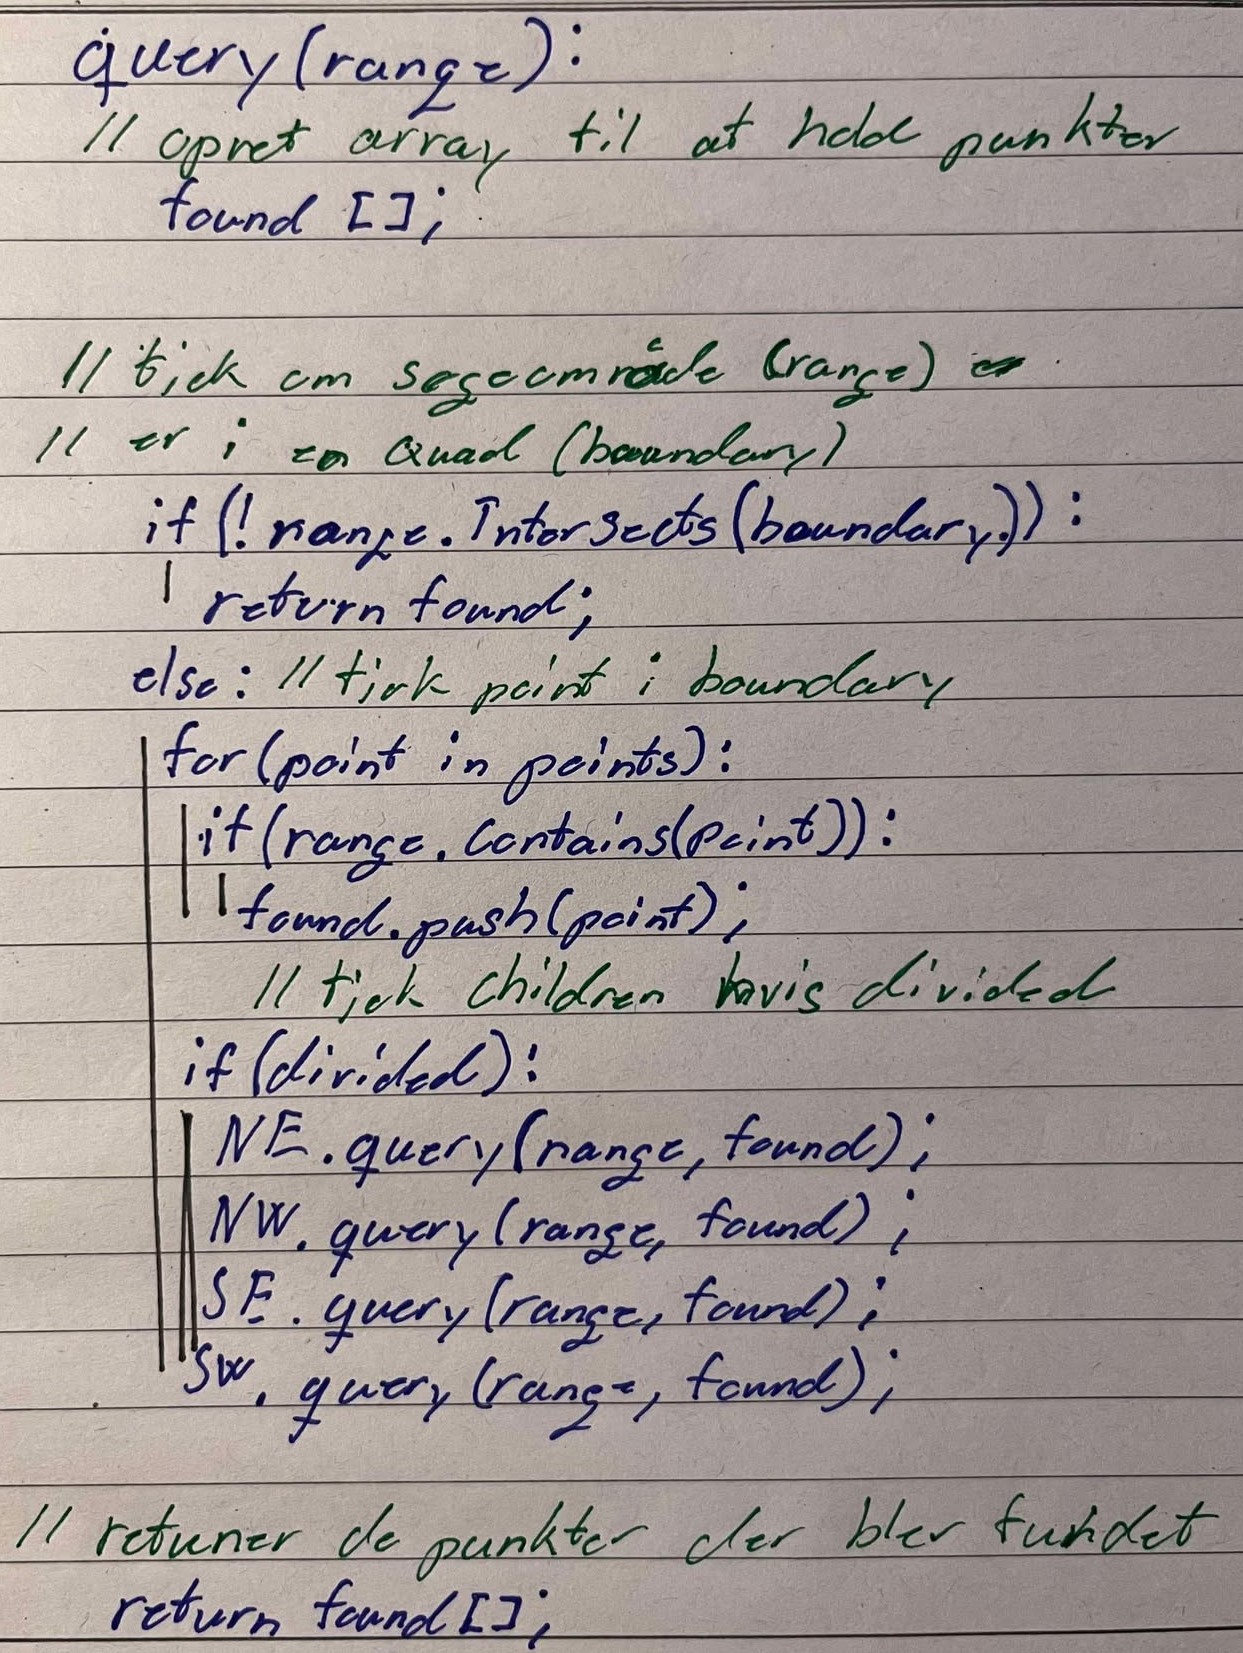 query(range):
// opret array til at hold punkter
found [];
// tjek om søgeområde (range)
// er i en Quad (boundary)
if(! range.Intersects(boundary)):
return found;
else: // tjek point i boundary
for(point in points):
if(range.Contains(point)):
found.push(point);
// tjek children hvis divided
if(divided):
NE.query(range, found);
NW.query(range, found);
SE.query(range, found);
SW.query(range, found);
// retuner de punkter der blev fundet
return found[];